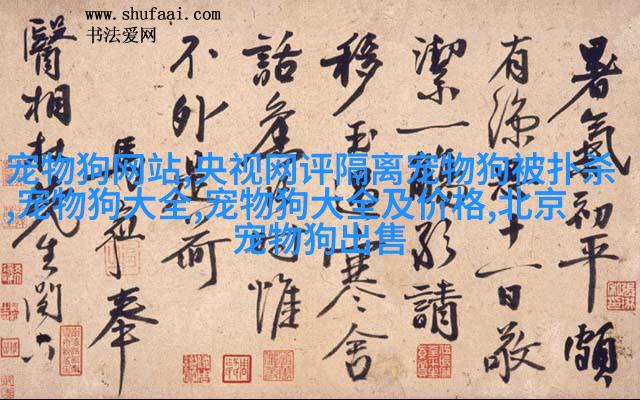 www.shufaai.com
书法爱网
宠物狗网站,央视网评隔离宠物狗被扑杀
,宠物狗大全,宠物狗大全及价格,北京
宠物狗出售
暑氣初平頗
有涼十一日敬
潔一觴敬請
移玉過寒舍
話惟
不外是荷
奉
醫相先生閣下